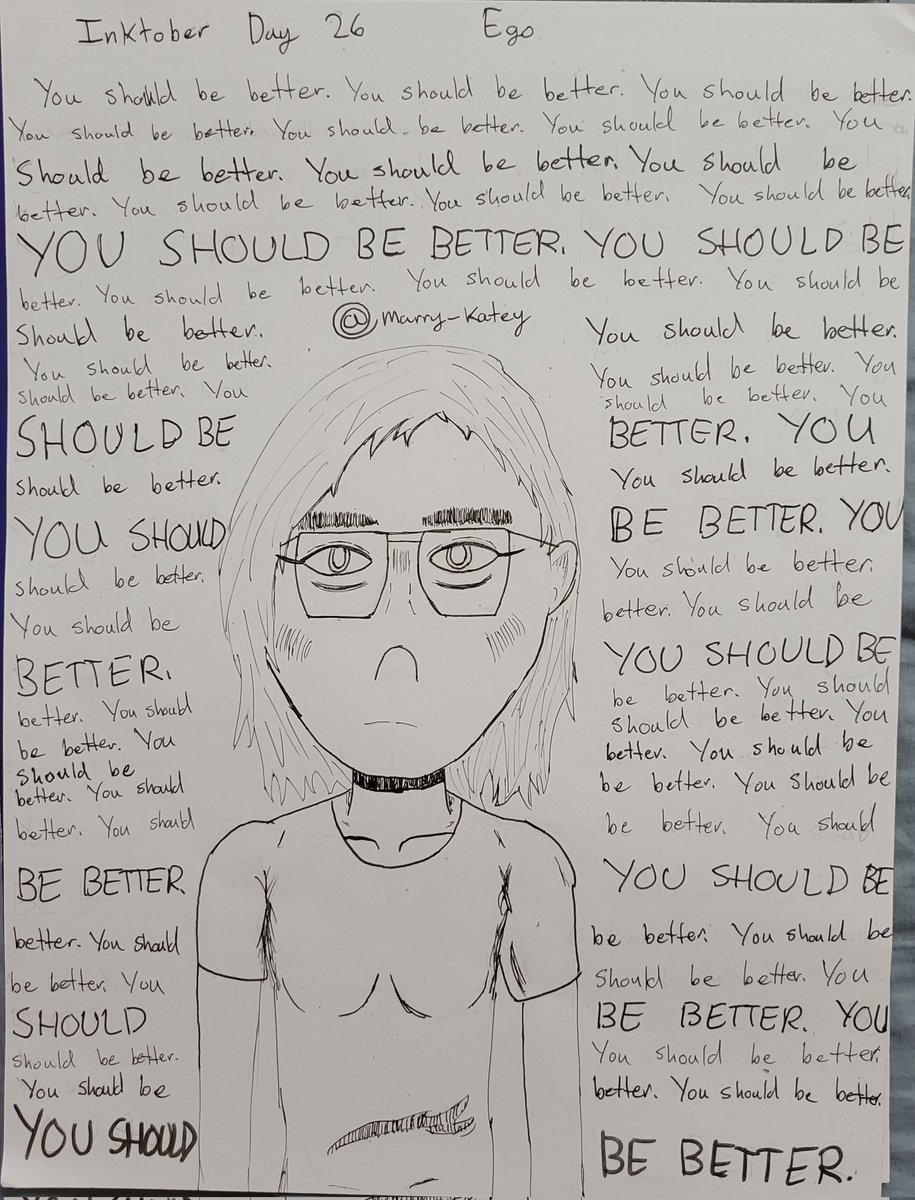 Inktober Day 26 Ego
You should be better. You should be better. You should be better.
You should be better. You should be better. You should be better. You
Should be better. You should be better. You should be
better. You should be better. You should be better. You should be better.
YOU SHOULD BE BETTER. YOU SHOULD BE
better. You should be better. You should be better. You should be
Should be better.
@marry-Katey
You should be better.
You should be better.
You should be better. You
should be better. You
should be better. You
SHOULD BE
BETTER. YOU
should be better.
You should be better.
YOU SHOULD
BE BETTER. YOU
should be better.
You should be better.
You should be
better. You should be
BETTER.
YOU SHOULD BE
better. You should
be better. You should
be better. You
should be better. You
should be
better. You should be
better. You should
be better. You should be
better. You should
be better. You should
BE BETTER
YOU SHOULD BE
better. You should
be better. You should be
be better. You
should be better. You
SHOULD
BE BETTER. YOU
should be better.
You should be better.
You should be
better. You should be better.
YOU SHOULD
BE BETTER.